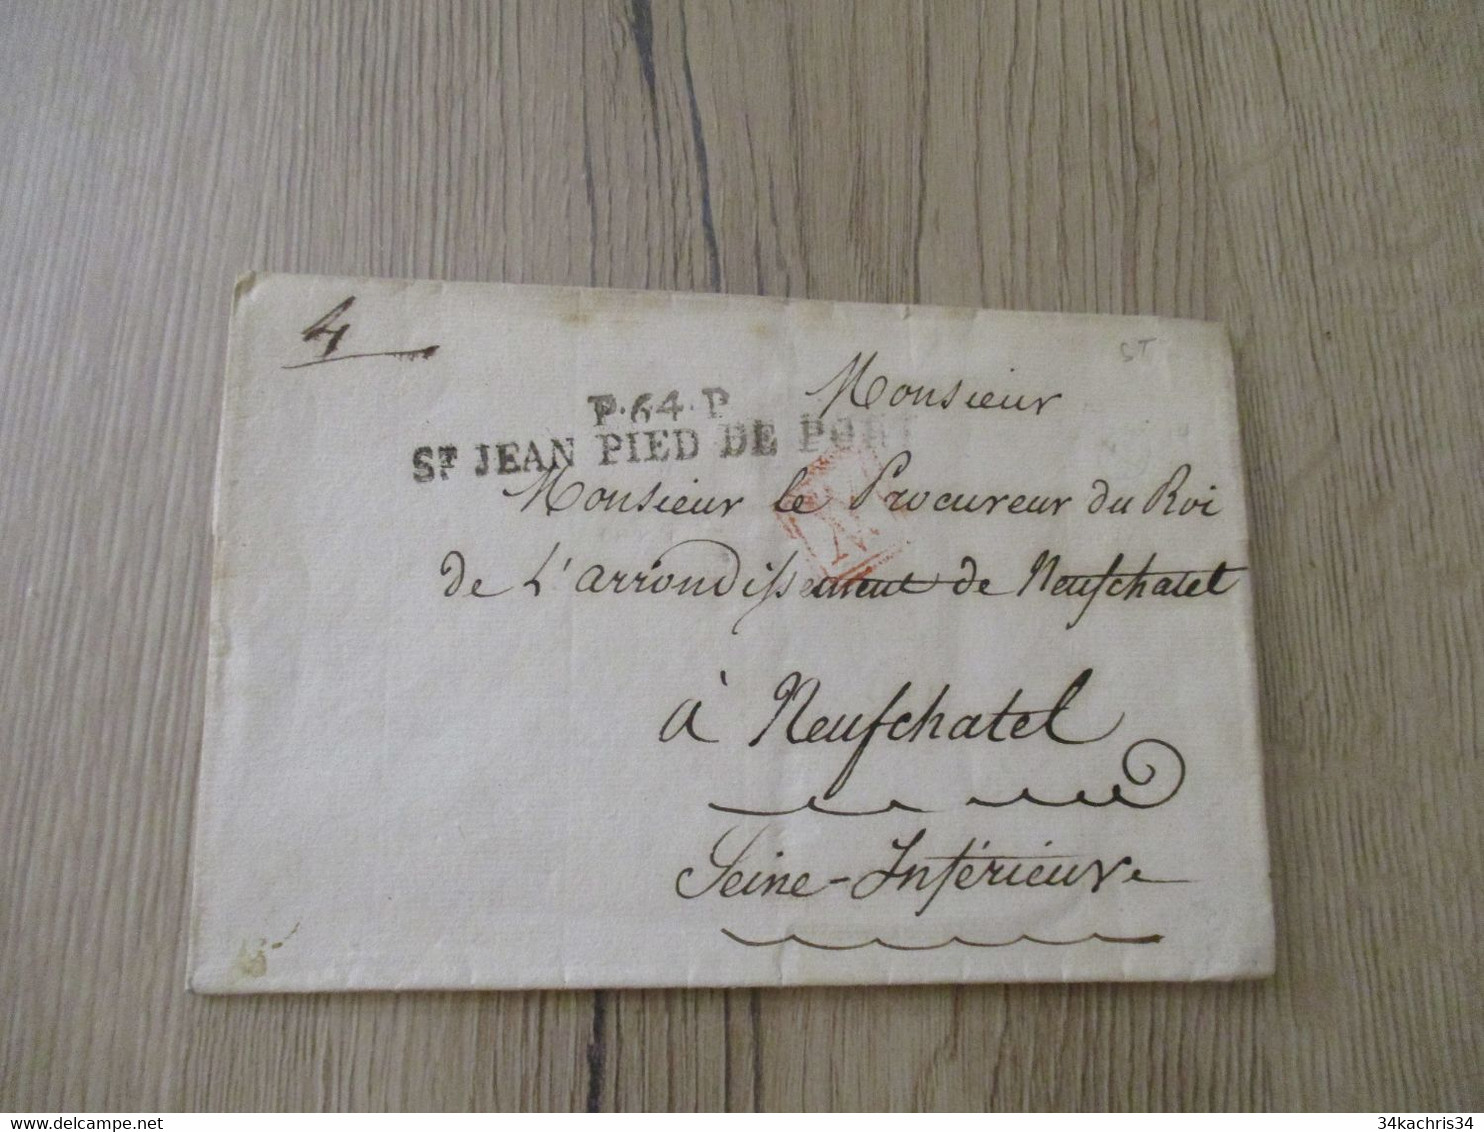 4
ST
Monsieur
P.64.P
ST JEAN PIED DE PORT
Monsieur le Procureur du Roi
de L'arrondissement de Neufchatel
à Neufchatel
Seine-Inférieure
delcampe.net
34kachris34